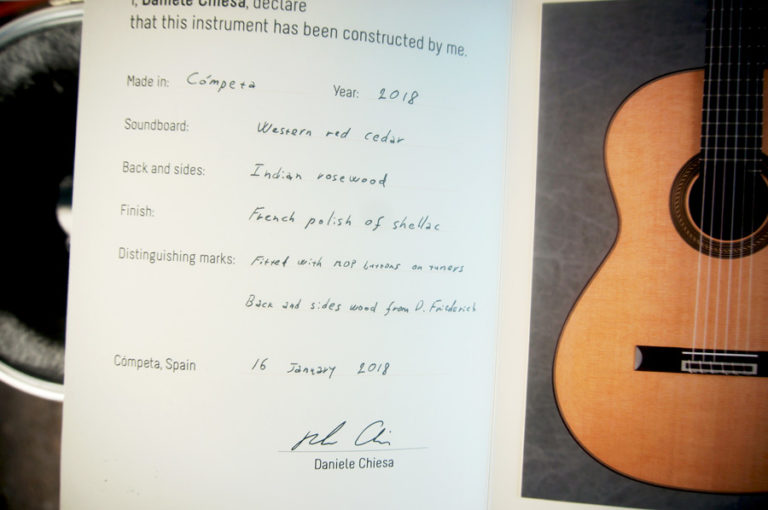 I, Daniele Chiesa, declare
that this instrument has been constructed by me.
Made in: Cómpeta Year: 2018
Soundboard: Western red cedar
Back and sides: Indian rosewood
Finish: French polish of shellac
Distinguishing marks: Fitted with MOP buttons on tuners
Back and sides wood from D. Friederich
Cómpeta, Spain 16 January 2018
Daniele Chiesa